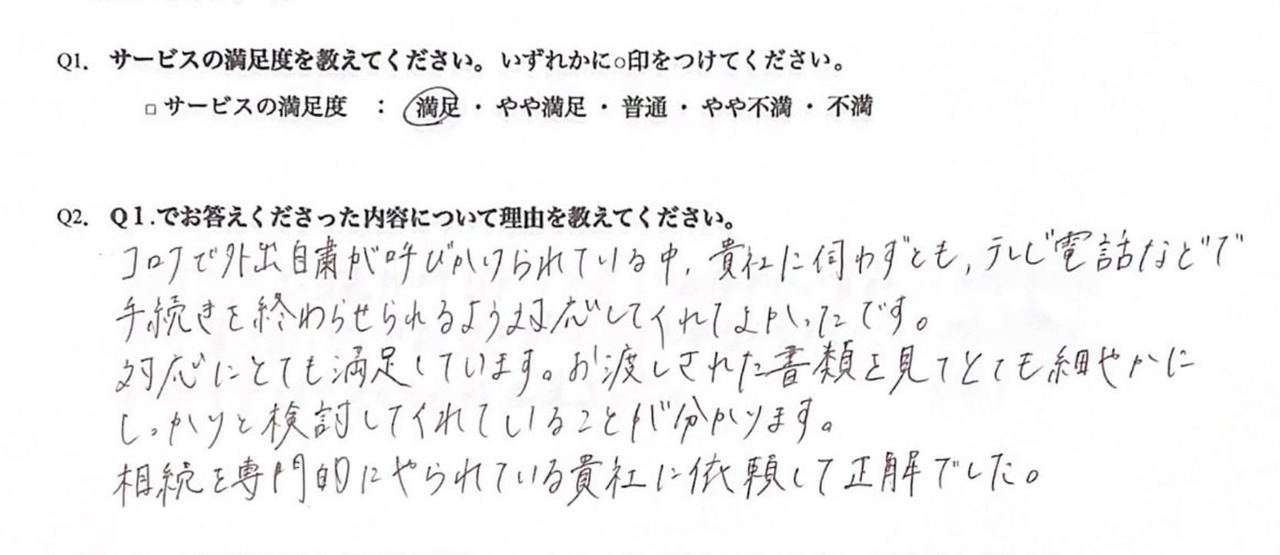 Q1. サービスの満足度を教えてください。いずれかに○印をつけてください。
□ サービスの満足度 : 満足 ・ やや満足 ・ 普通 ・ やや不満 ・ 不満
Q2. Q1.でお答えくださった内容について理由を教えてください。
コロナで外出自粛が呼びかけられている中、貴社に伺わずとも、テレビ電話などで
手続きを終わらせられるよう対応してくれてよかったです。
対応にとても満足しています。お渡しされた書類を見てとても細やかに
しっかりと検討してくれていることが分かります。
相続を専門的にやられている貴社に依頼して正解でした。